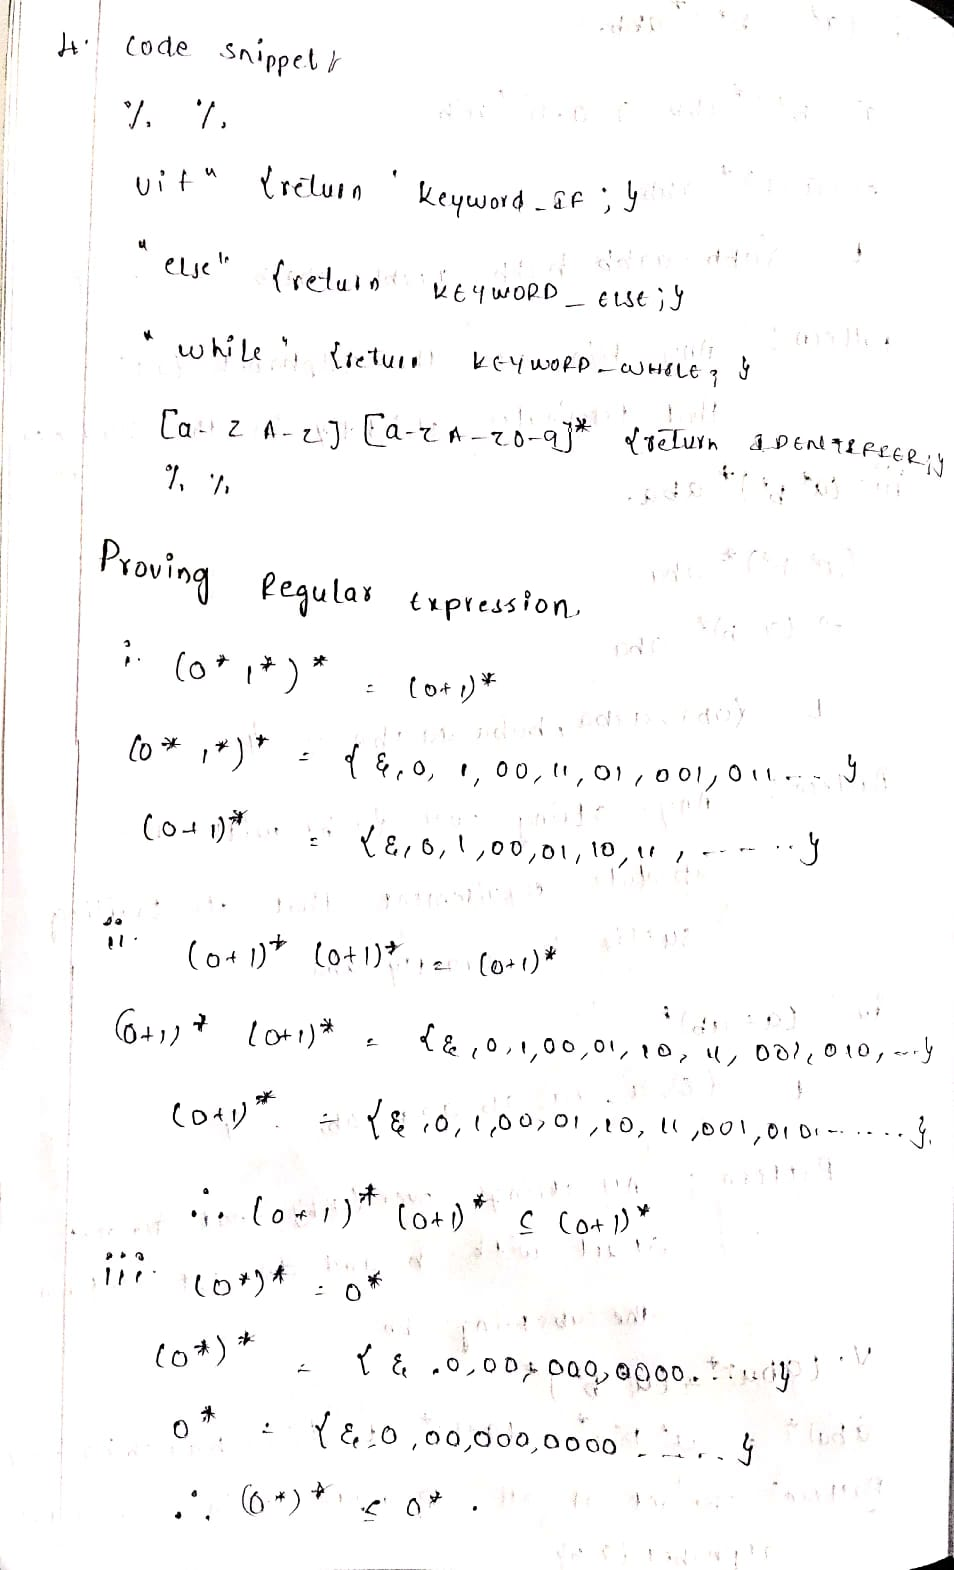 4. Code snippet
% %
"if" {return Keyword_IF ; }
"else" {return KEYWORD_ELSE ; }
"while" {return KEYWORD_WHILE ; }
[a-z A-Z] [a-z A-Z 0-9]* {return IDENTIFIER ; }
% %
Proving Regular Expression
i. (0* 1*)* = (0+1)*
(0* 1*)* = { ε, 0, 1, 00, 11, 01, 001, 011 ... }
(0+1)* = { ε, 0, 1, 00, 01, 10, 11, ..... }
ii. (0+1)* (0+1)* = (0+1)*
(0+1)* (0+1)* = { ε, 0, 1, 00, 01, 10, 11, 001, 010, ... }
(0+1)* = { ε, 0, 1, 00, 01, 10, 11, 001, 010 ...... }.
∴ (0+1)* (0+1)* ⊆ (0+1)*
iii. (0*)* = 0*
(0*)* = { ε, 0, 00, 000, 0000. ..... }
0* = { ε, 0, 00, 000, 0000 ..... }
∴ (0*)* ⊆ 0* .